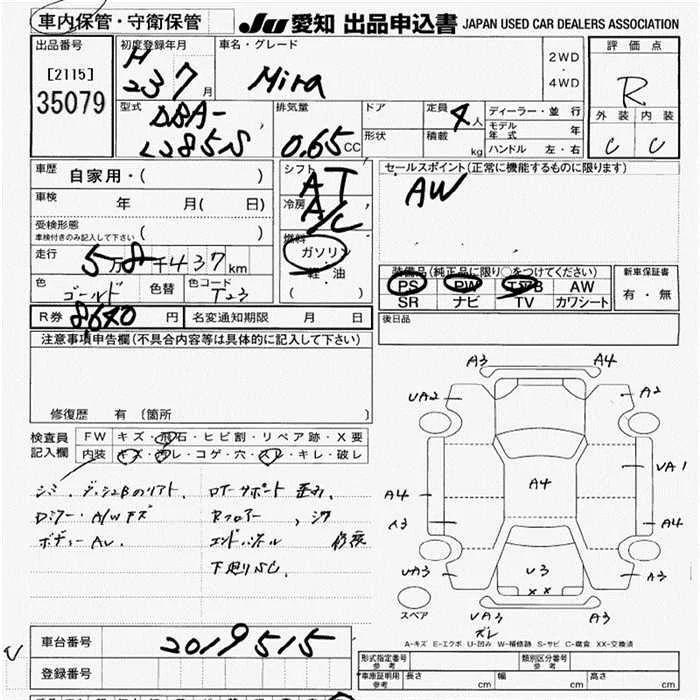 車内保管・守衛保管
JU 愛知 出品申込書 JAPAN USED CAR DEALERS ASSOCIATION
出品番号
[2115]
35079
初度登録年月
H
23 7 月
車名・グレード
Mira
2WD
・
4WD
評価点
R
外装 内装
C C
型式
DBA-
L285S
排気量
0.65 CC
ドア
形状
定員 4 人
積載 kg
ディーラー・並行
モデル年式 年
ハンドル 左・右
車歴 自家用・( )
車検 年 月( 日)
受検形態
車検付きのみ記入して下さい ( )
走行 5万8千437km
色 ゴールド 色替 色コード T23
R券 8,640 円 名変通知期限 月 日
シフト AT
冷房 A/C
燃料
ガソリン
・
軽・油
( )
セールスポイント(正常に機能するものに限ります)
AW
装備品(純正品に限り○をつけてください)
PS PW エアB AW
SR ナビ TV カワシート
新車保証書
有・無
後日品
注意事項申告欄(不具合内容等は具体的に記入して下さい)
修復歴 有 (箇所 )
検査員
記入欄
FW キズ・飛石・ヒビ割・リペア跡・X要
内装 キズ・汚レ・コゲ・穴・スレ・キレ・破レ
シミ、
Dミラー・A/Wキズ
ボディーAU.
Rフロアー
エンドパネル
下廻りSC.
A3 A4
UA2 A2
A4 A4 UA1
A3 A4
UA3 U3 A3
XX
スペア
UA3 A3
ズレ
A-キズ E-エクボ U-凹み W-補修跡 S-サビ C-腐食 XX-交換済
車台番号 2019515
登録番号
形式指定番号
参考
類別区分番号
参考
車庫証明用
参考
長さ cm 幅 cm 高さ cm